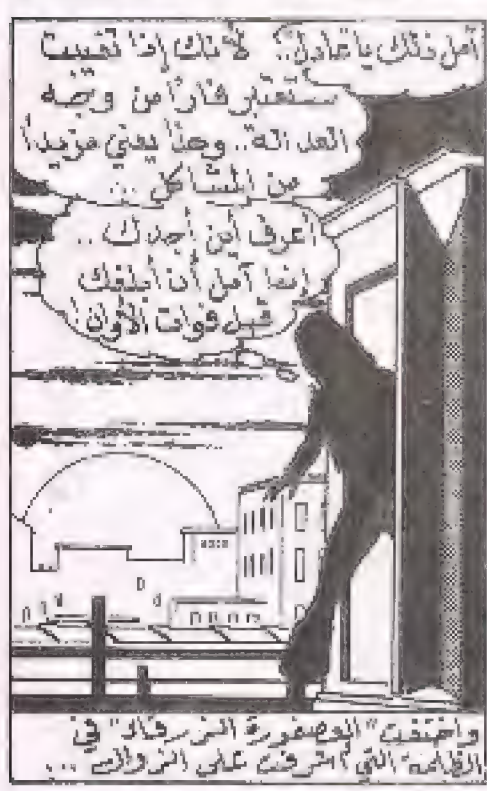 آمل ذلك يا عادل؟ لأنك إذا تغيبت
ستعتبر فاراً من وجه
العدالة.. وهذا يعني مزيداً
من المشاكل ..
أعرف أين أجدك ..
إنما آمل أن أبلغك
قبل فوات الأوان!
واختفت "العصفورة الزرقاء" في
الظلمة التي أشرفت على الزوال ...